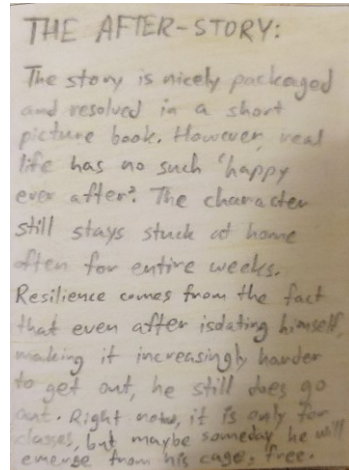 THE AFTER-STORY:
The story is nicely packaged
and resolved in a short
picture book. However, real
life has no such 'happy
ever after'. The character
still stays stuck at home
often for entire weeks.
Resilience comes from the fact
that even after isolating himself,
making it increasingly harder
to get out, he still does go
out. Right now, it is only for
classes, but maybe someday he will
emerge from his cage, free.